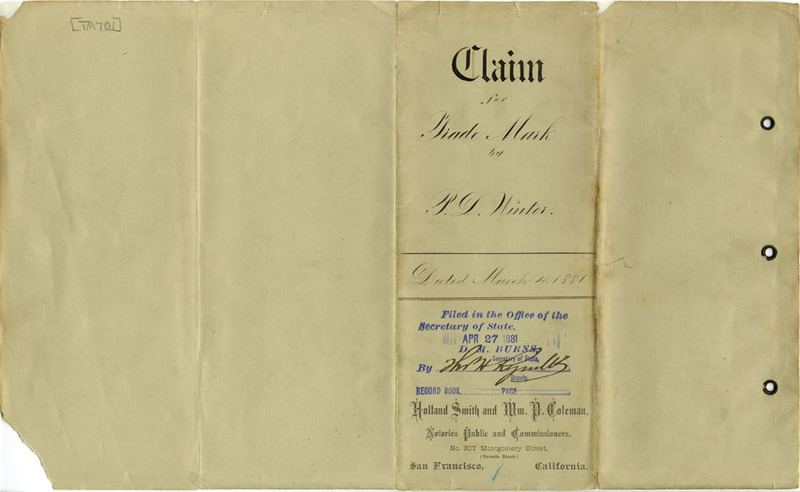 [TM701]
Claim
for
Trade Mark
by
P. D. Winter.
Dated March 4, 1881
Filed in the Office of the
Secretary of State,
APR 27 1881
D. M. BURNS,
Secretary of State,
By Thos H Reynolds
Deputy.
RECORD BOOK PAGE
Holland Smith and Wm. P. Coleman,
Notaries Public and Commissioners,
No. 307 Montgomery Street,
(Nevada Block)
San Francisco, California.